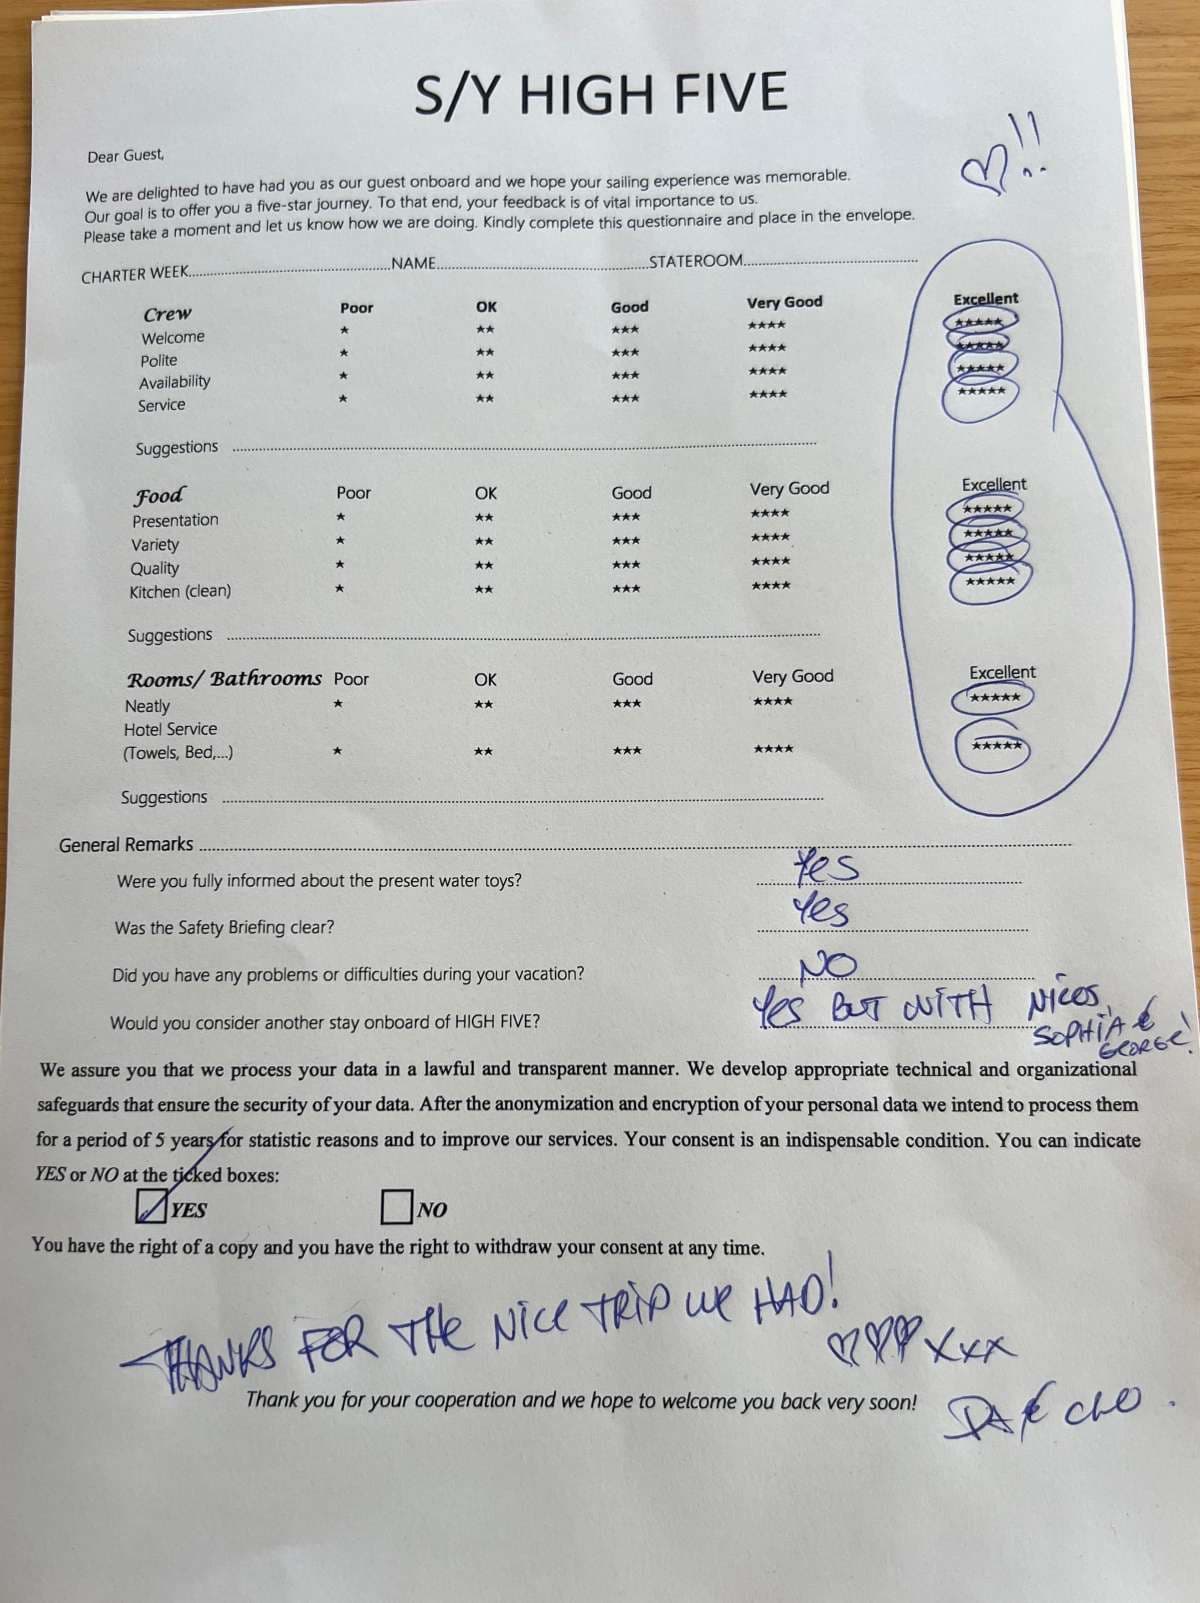 S/Y HIGH FIVE
!!
Dear Guest,
We are delighted to have had you as our guest onboard and we hope your sailing experience was memorable.
Our goal is to offer you a five-star journey. To that end, your feedback is of vital importance to us.
Please take a moment and let us know how we are doing. Kindly complete this questionnaire and place in the envelope.
CHARTER WEEK..............................NAME..............................STATEROOM..............................
Crew Poor OK Good Very Good Excellent
Welcome ★ ★★ ★★★ ★★★★ ★★★★★
Polite ★ ★★ ★★★ ★★★★ ★★★★★
Availability ★ ★★ ★★★ ★★★★ ★★★★★
Service ★ ★★ ★★★ ★★★★ ★★★★★
Suggestions ..............................
Food Poor OK Good Very Good Excellent
Presentation ★ ★★ ★★★ ★★★★ ★★★★★
Variety ★ ★★ ★★★ ★★★★ ★★★★★
Quality ★ ★★ ★★★ ★★★★ ★★★★★
Kitchen (clean) ★ ★★ ★★★ ★★★★ ★★★★★
Suggestions ..............................
Rooms/ Bathrooms Poor OK Good Very Good Excellent
Neatly ★ ★★ ★★★ ★★★★ ★★★★★
Hotel Service
(Towels, Bed,...) ★ ★★ ★★★ ★★★★ ★★★★★
Suggestions ..............................
General Remarks ..............................
Were you fully informed about the present water toys? Yes
Was the Safety Briefing clear? Yes
Did you have any problems or difficulties during your vacation? NO
Would you consider another stay onboard of HIGH FIVE? Yes BUT WITH NICOS,
SOPHIA &
GEORGE!
We assure you that we process your data in a lawful and transparent manner. We develop appropriate technical and organizational
safeguards that ensure the security of your data. After the anonymization and encryption of your personal data we intend to process them
for a period of 5 years for statistic reasons and to improve our services. Your consent is an indispensable condition. You can indicate
YES or NO at the ticked boxes:
YES NO
You have the right of a copy and you have the right to withdraw your consent at any time.
THANKS FOR THE NICE TRIP WE HAD!
♡♡♡ XXX
Thank you for your cooperation and we hope to welcome you back very soon!
DA & CLO.